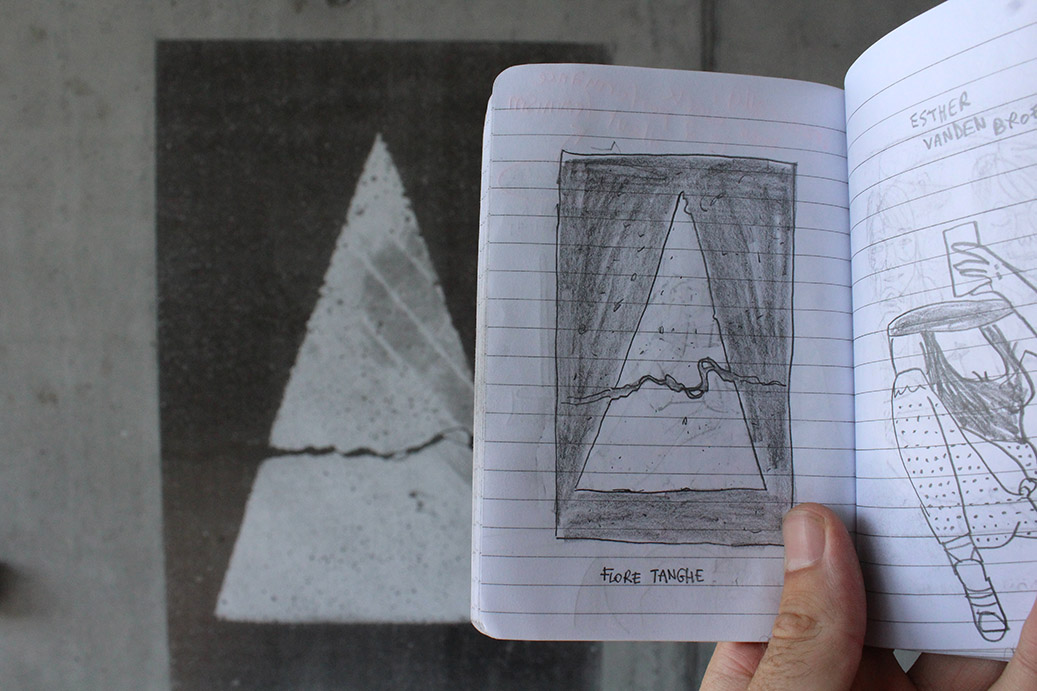 FLORE TANGHE
ESTHER
VANDEN BROE